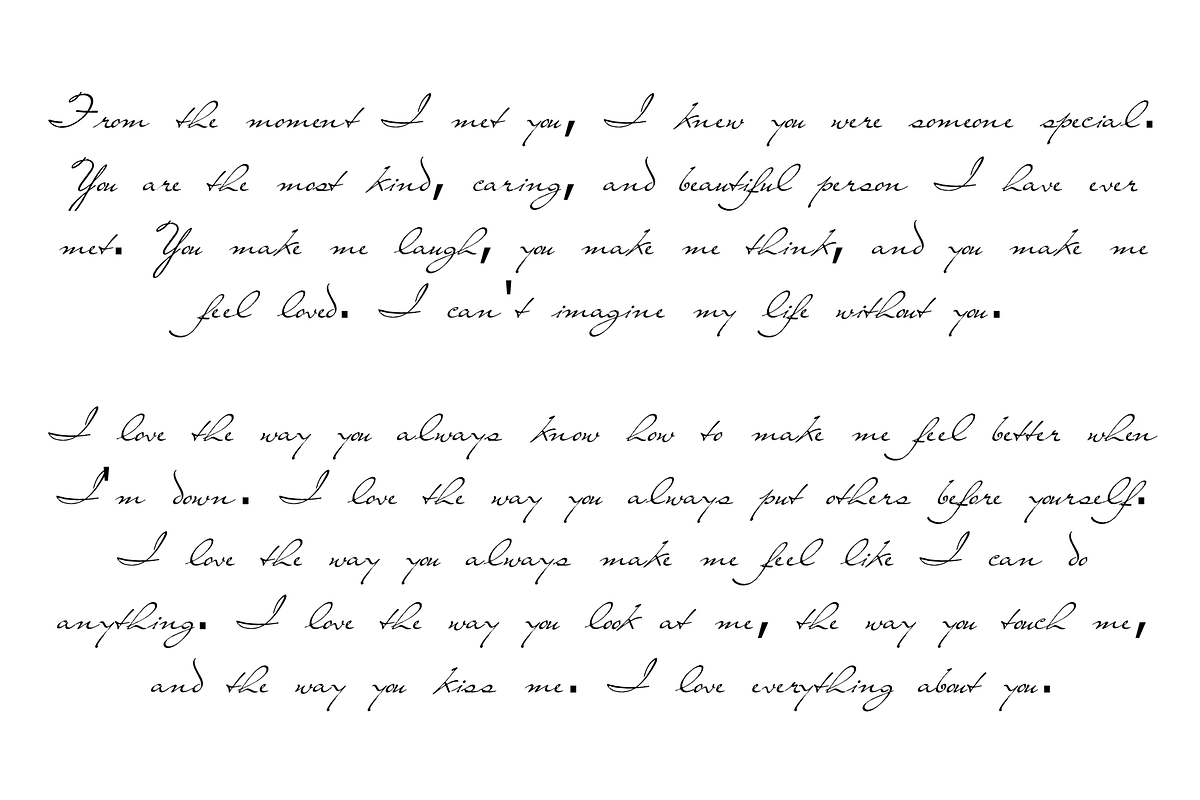 From the moment I met you, I knew you were someone special.
You are the most kind, caring, and beautiful person I have ever
met. You make me laugh, you make me think, and you make me
feel loved. I can't imagine my life without you.
I love the way you always know how to make me feel better when
I'm down. I love the way you always put others before yourself.
I love the way you always make me feel like I can do
anything. I love the way you look at me, the way you touch me,
and the way you kiss me. I love everything about you.